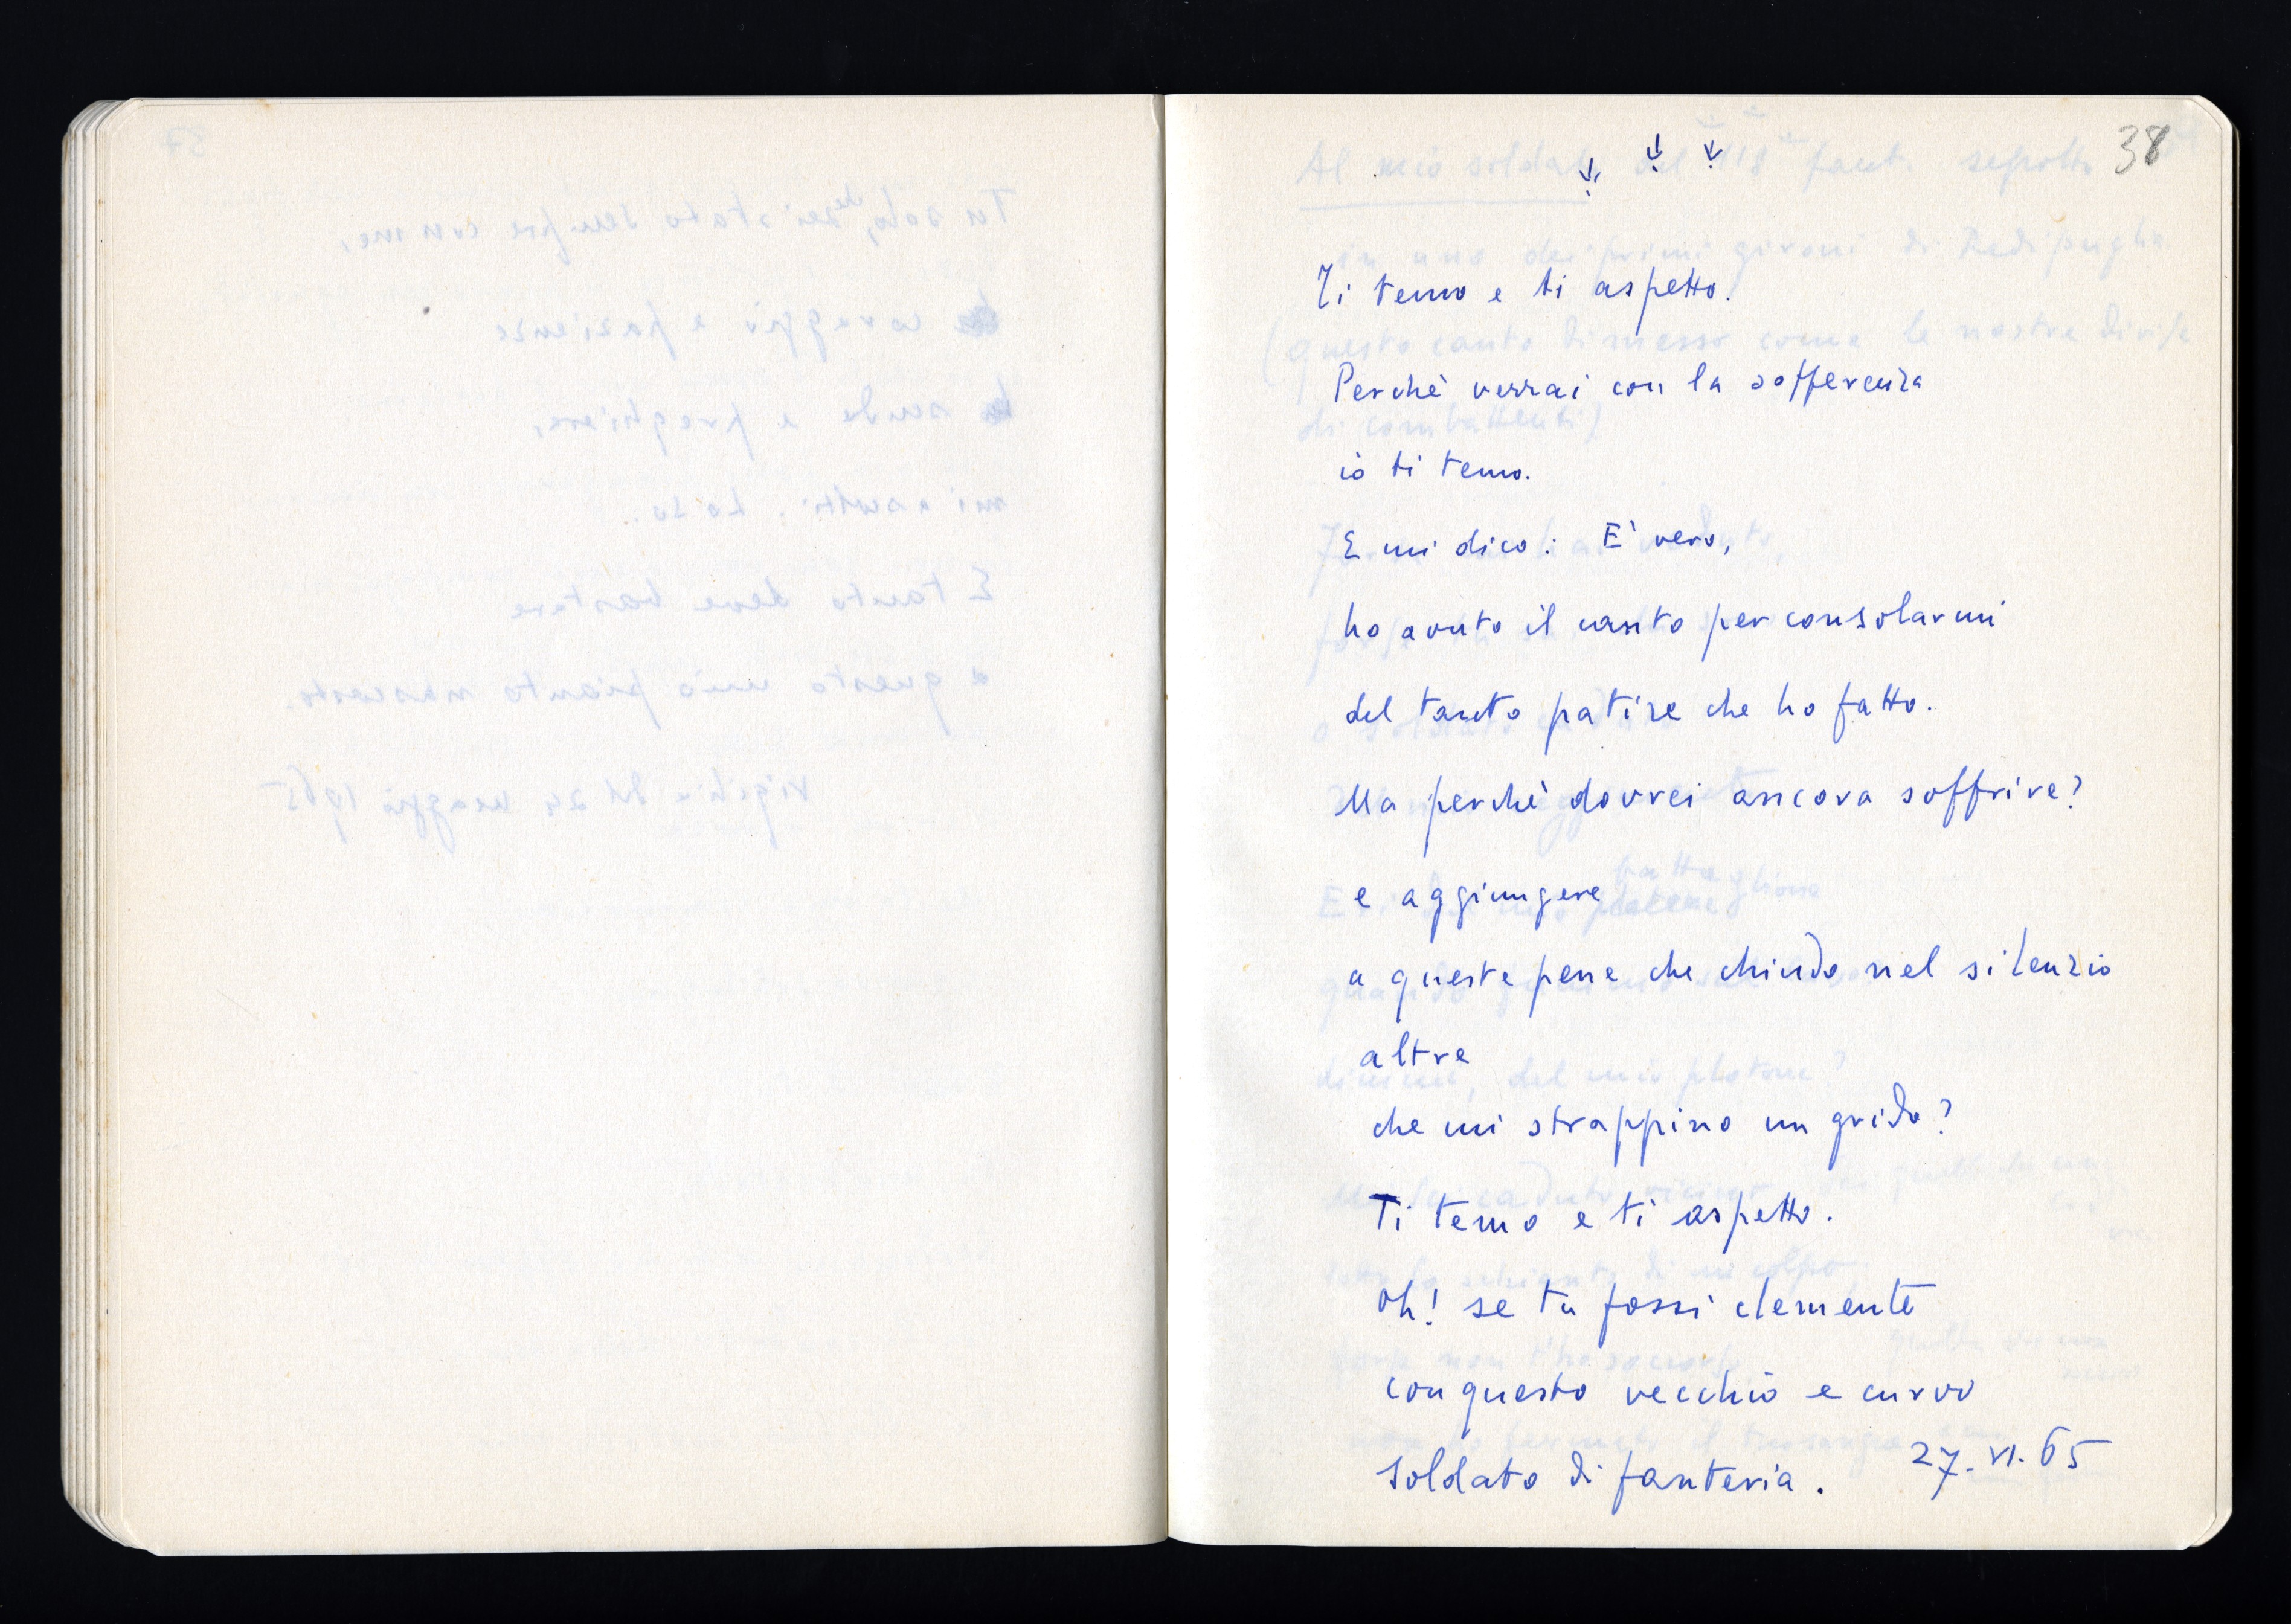 38
Ti temo e ti aspetto.
Perchè verrai con la sofferenza
io ti temo.
E mi dico: E' vero,
ho avuto il canto per consolarmi
del tanto patire che ho fatto.
Ma perchè dovrei ancora soffrire?
e aggiungere
a queste pene che chiudo nel silenzio
altre
che mi strappino un grido?
Ti temo e ti aspetto.
Oh! se tu fossi clemente
con questo vecchio e curvo
soldato di fanteria.
27. VI. 65